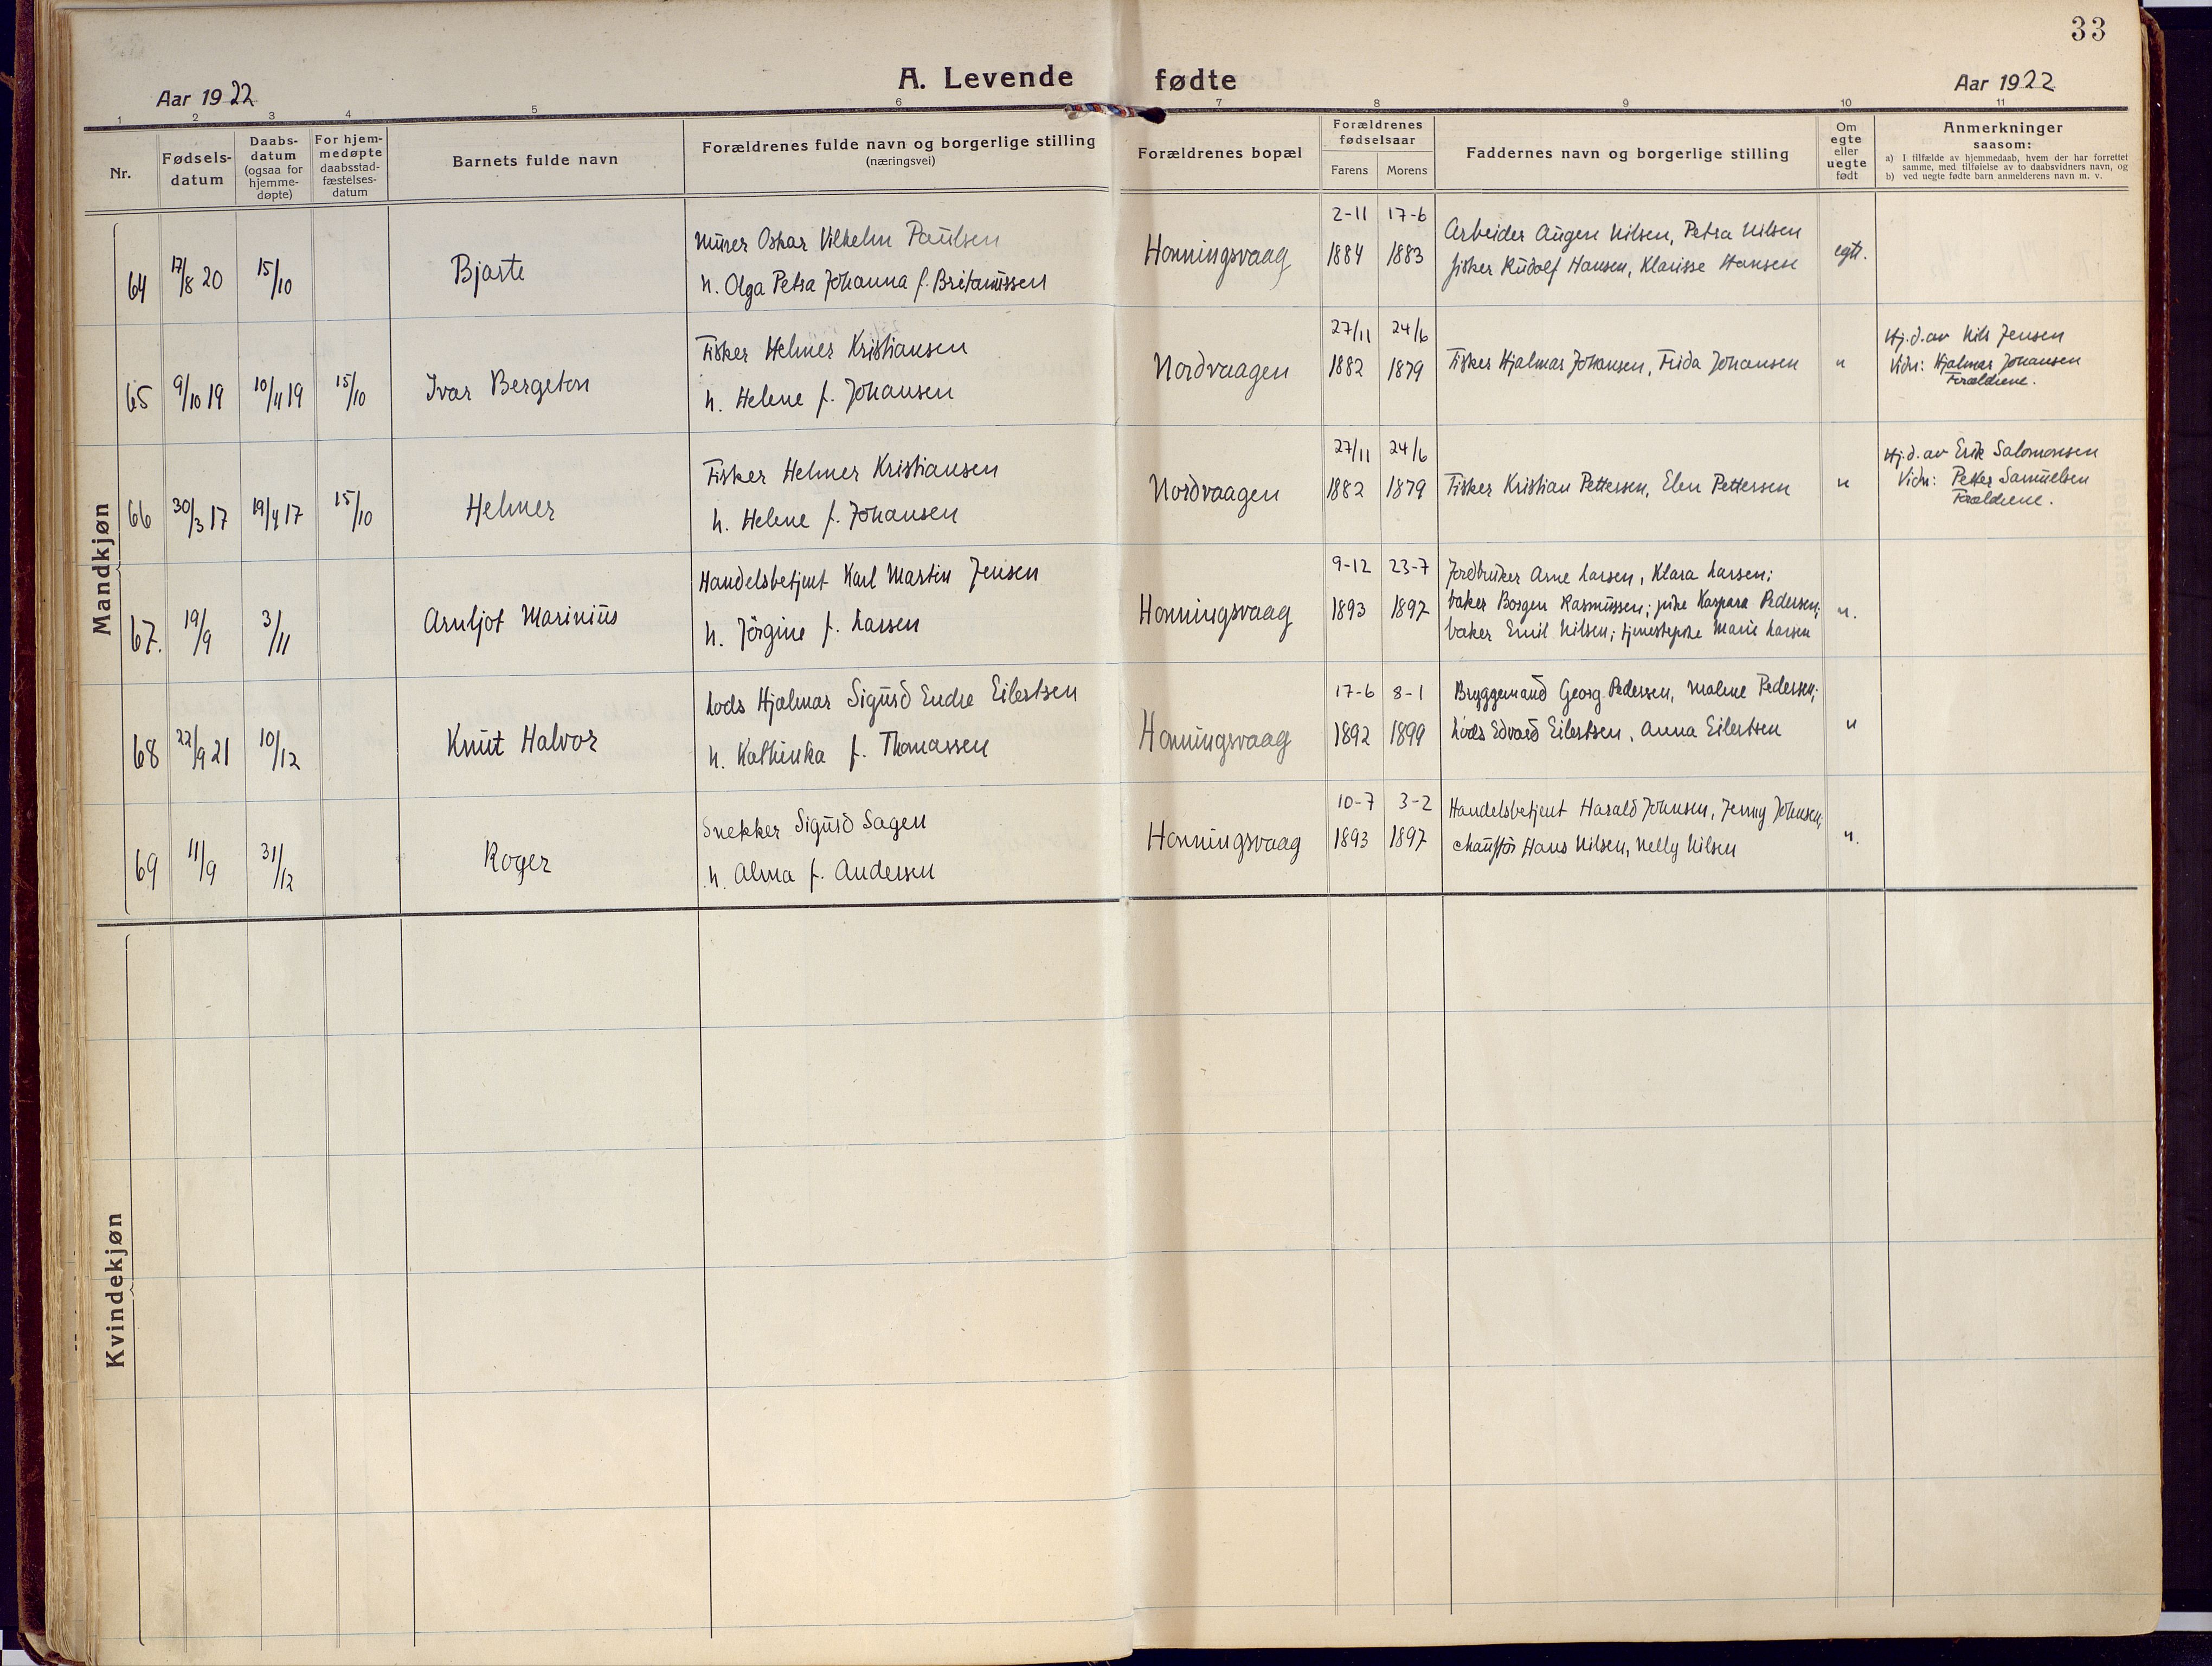 33
A. Levende fødte
Aar 1922
Aar 1922
1 2 3 4 5 6 7 8 9 10 11
Nr.
Fødsels-
datum
Daabs-
datum
(ogsaa for
hjemme-
døpte)
For hjem-
medøpte
daabsstad-
fæstelses-
datum
Barnets fulde navn
Forældrenes fulde navn og borgerlige stilling
(næringsvei)
Forældrenes bopæl
Forældrenes
fødselsaar
Farens Morens
Faddernes navn og borgerlige stilling
Om
egte
eller
uegte
født
Anmerkninger
saasom:
a) I tilfælde av hjemmedaab, hvem der har forrettet
samme, med tilføielse av to daabsvidners navn, og
b) ved uegte fødte barn anmelderens navn m. v.
Mandkjøn
64 17/8 20 15/10 Bjarte
Murer Oskar Vilhelm Paulsen
h. Olga Petra Johanna f. Britanussen
Honningsvaag
2-11 17-6
1884 1883
Arbeider Augen Nilsen, Petra Nilsen
fisker Rudolf Hansen, Klarisse Hansen
egte.
65 9/10 19 10/11 19 15/10 Ivar Bergeton
Fisker Helmer Kristiansen
h. Helene f. Johansen
Nordvaagen
27/11 24/6
1882 1879
Fisker Hjalmar Johansen, Frida Johansen
"
Hj.d. av Nils Jensen
Vidn: Hjalmar Johansen
Forældrene.
66 30/3 17 19/4 17 15/10 Helmer
Fisker Helmer Kristiansen
h. Helene f. Johansen
Nordvaagen
27/11 24/6
1882 1879
Fisker Kristian Pettersen, Elen Pettersen
"
Hj.d. av Erik Salomonsen
Vidn: Petter Samuelsen
Forældrene.
67. 19/9 3/11 Arnljot Marinius
Handelsbetjent Karl Martin Jensen
h. Jørgine f. Larsen
Honningsvaag
9-12 23-7
1893 1897
Jordbruker Arne Larsen, Klara Larsen;
baker Borgen Rasmussen; pike Kaspara Pedersen;
baker Emil Nilsen; tjenestepike Marie Larsen
".
68 22/9 21 10/12 Knut Halvor
Lods Hjalmar Sigurd Endre Eilertsen
h. Kathinka f. Thomassen
Honningsvaag
17-6 8-1
1892 1899
Bryggemand Georg Pedersen, Malene Pedersen;
Lods Edvard Eilertsen, Anna Eilertsen
"
69 11/9 31/12 Roger
Snekker Sigurd Sagen
h. Alma f. Andersen
Honningsvaag
10-7 3-2
1893 1897
Handelsbetjent Harald Johnsen, Jenny Johnsen;
chauffør Hans Nilsen, Nelly Nilsen
".
Kvindekjøn